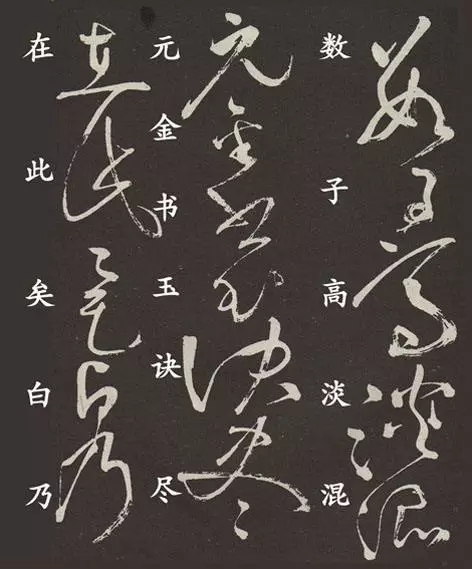 数子高淡混
元金书玉诀尽
在此矣白乃